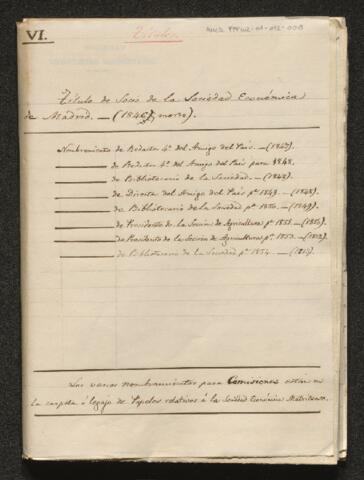 VI.
Títulos.
Título de Socio de la Sociedad Económica
de Madrid. — (1846, enero).
Nombramiento de Redactor 4º del Amigo del País. — (1847).
de Redactor 4º del Amigo del País para 1848.
de Bibliotecario de la Sociedad. — (1848).
de Director del Amigo del País pª 1849. — (1848).
de Bibliotecario de la Sociedad pª 1850. — (1849).
de Presidente de la Sección de Agricultura pª 1851. — (1850).
de Presidente de la Sección de Agricultura pª 1853. — (1852).
de Bibliotecario de la Sociedad pª 1854. — (1853).
Los varios nombramientos para Comisiones están en
la carpeta ó legajo de Papeles relativos á la Sociedad Económica Matritense.